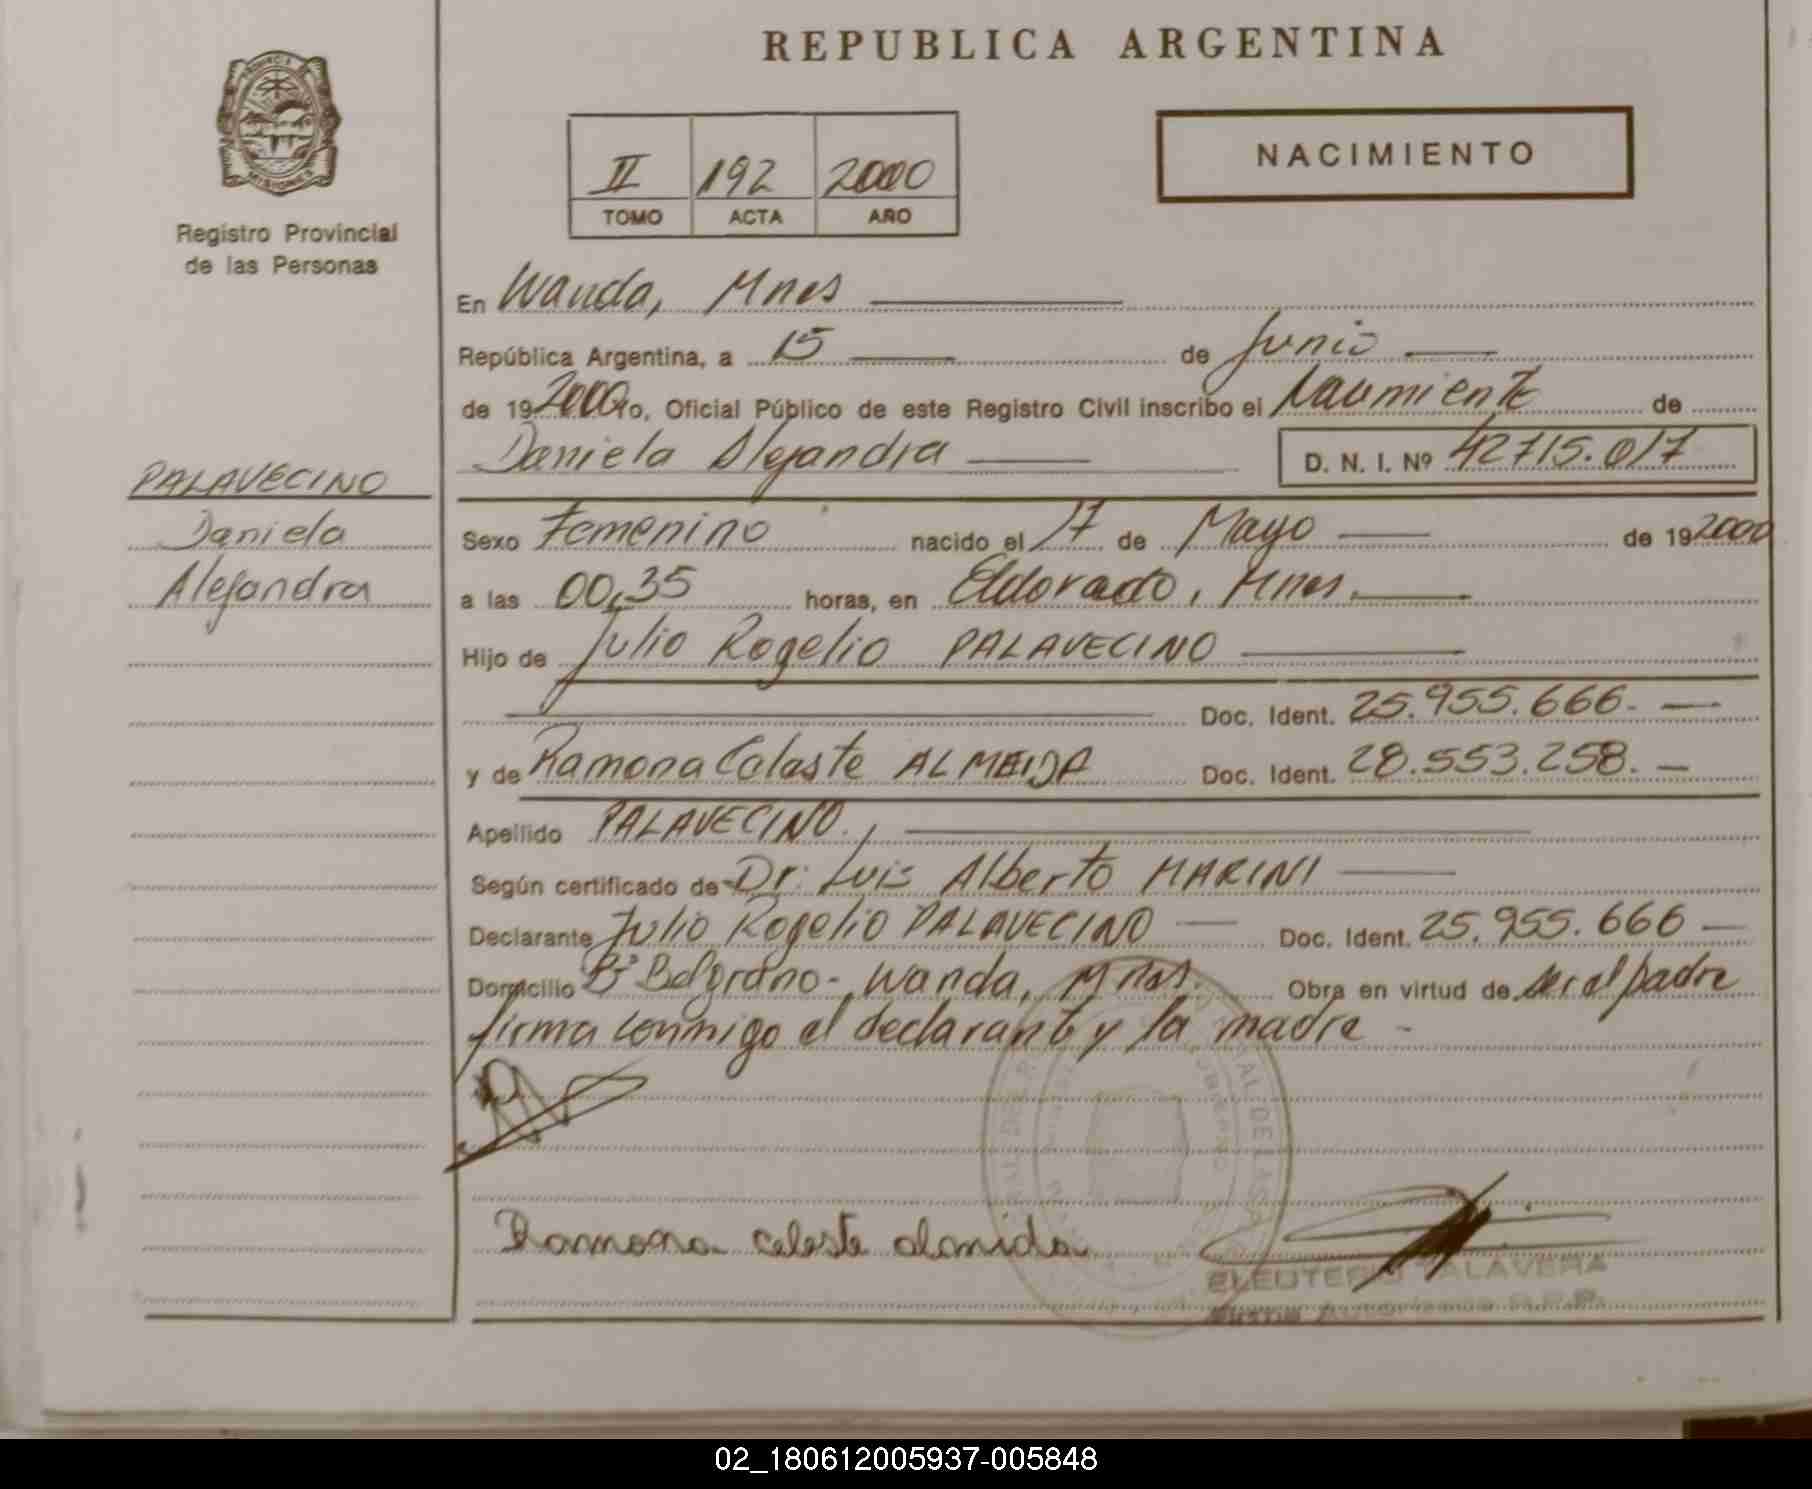 REPUBLICA ARGENTINA
PROVINCIA
MISIONES
Registro Provincial
de las Personas
II 192 2000
TOMO ACTA AÑO
NACIMIENTO
En Wanda, Mnes
República Argentina, a 15 de Junio
de 19 2000 Yo, Oficial Público de este Registro Civil inscribo el Nacimiento de
Daniela Alejandra D. N. I. Nº 42715.017
PALAVECINO
Daniela
Alejandra
Sexo Femenino nacido el 17 de Mayo de 19 2000
a las 00,35 horas, en Eldorado, Mnes.
Hijo de Julio Rogelio PALAVECINO
Doc. Ident. 25.955.666.
y de Ramona Celeste ALMEIDA Doc. Ident. 28.553.258.
Apellido PALAVECINO.
Según certificado de Dr. Luis Alberto MARINI
Declarante Julio Rogelio PALAVECINO Doc. Ident. 25.955.666
Domicilio Bº Belgrano-, Wanda, Mnes. Obra en virtud de ser el padre
firma conmigo el declarante y la madre -
Ramona celeste almida
ELEUTERIO TALAVERA
02_180612005937-005848